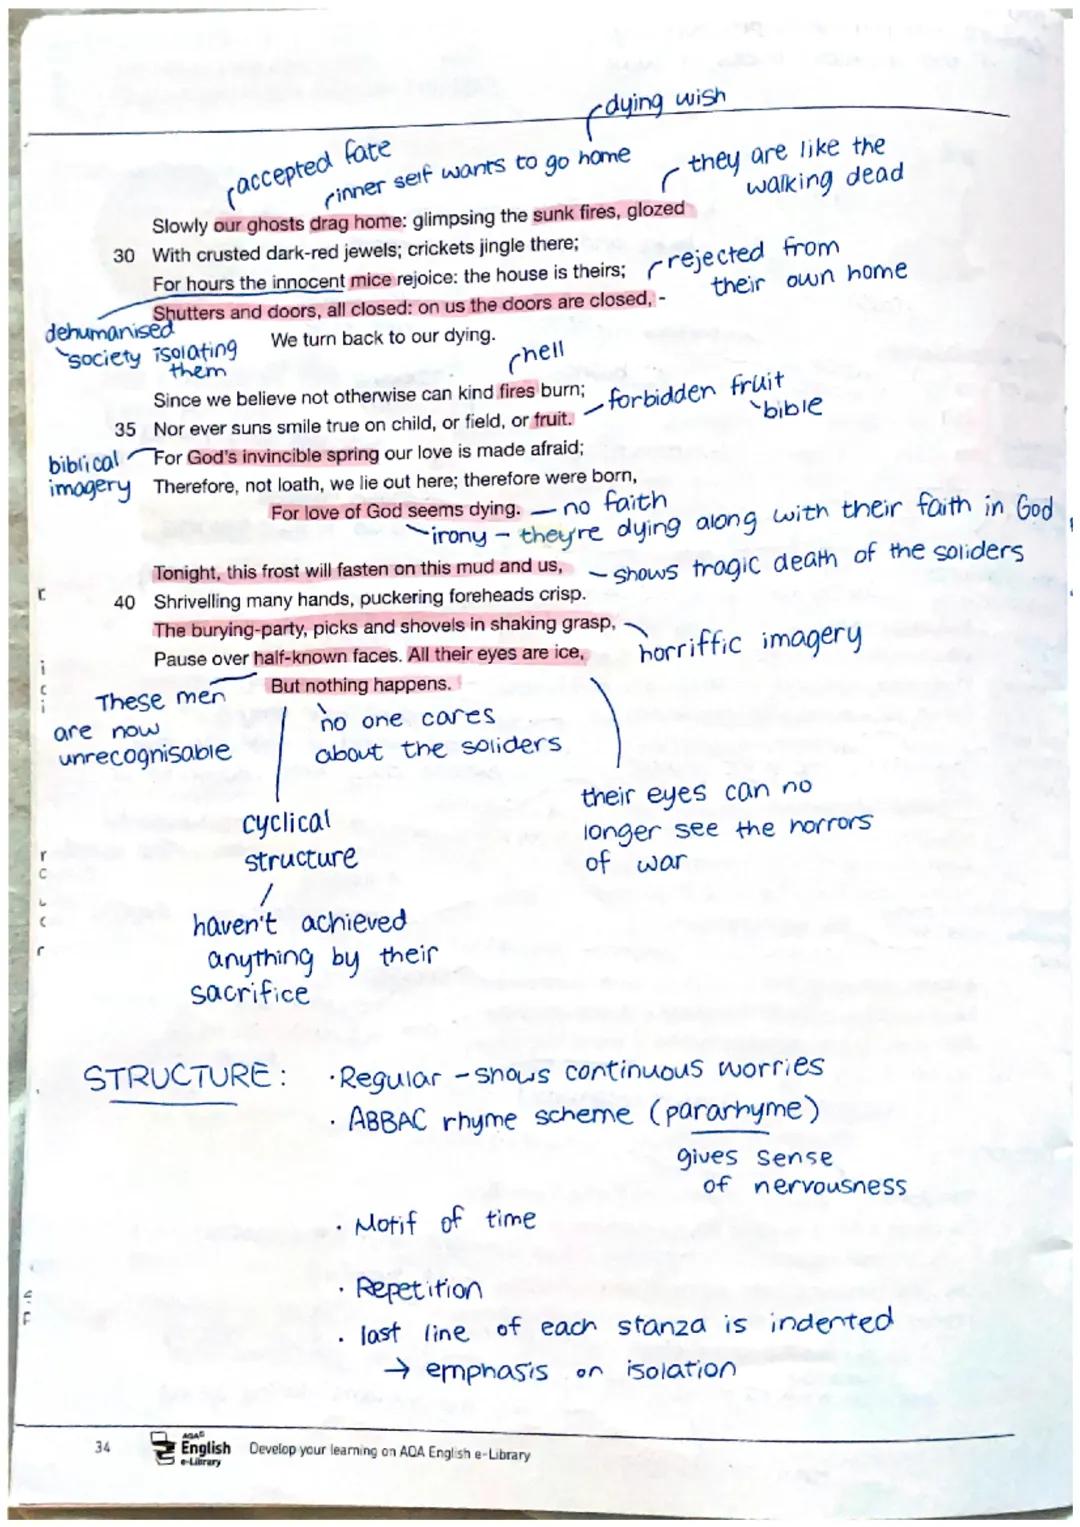 dying wish
accepted fate
inner self wants to go home
they are like the
walking dead
Slowly our ghosts drag home: glimpsing the sunk fires, glozed
30 With crusted dark-red jewels; crickets jingle there;
For hours the innocent mice rejoice: the house is theirs;
rejected from
their own home
Shutters and doors, all closed: on us the doors are closed, -
We turn back to our dying.
dehumanised
society isolating
them
hell
Since we believe not otherwise can kind fires burn;
forbidden fruit
bible
35 Nor ever suns smile true on child, or field, or fruit.
biblical
imagery
For God's invincible spring our love is made afraid;
Therefore, not loath, we lie out here; therefore were born,
For love of God seems dying. — no faith
irony - they're dying along with their faith in God
Tonight, this frost will fasten on this mud and us,
- shows tragic death of the soliders
40 Shrivelling many hands, puckering foreheads crisp.
The burying-party, picks and shovels in shaking grasp,
horriffic imagery
Pause over half-known faces. All their eyes are ice,
But nothing happens.
These men
are now
unrecognisable
no one cares
about the soliders
their eyes can no
longer see the horrors
of war
cyclical
structure
haven't achieved
anything by their
sacrifice
STRUCTURE:
· Regular - shows continuous worries
· ABBAC rhyme scheme (pararhyme)
gives sense
of nervousness
· Motif of time
· Repetition
· last line of each stanza is indented
→ emphasis on isolation
34
AQA
English
e-Library
Develop your learning on AQA English e-Library